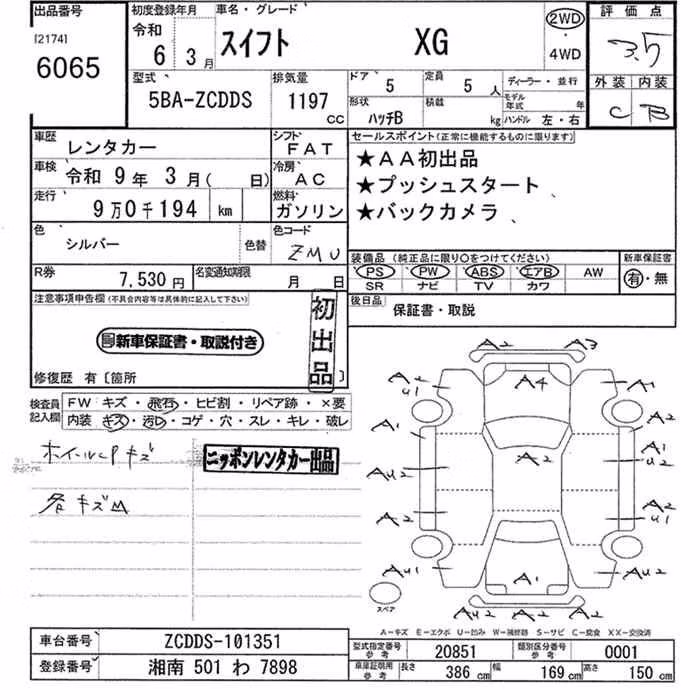 出品番号
[2174]
6065
初度登録年月
令和
6年 3月
車名・グレード
スイフト XG
2WD
・
4WD
評価点
3.5
外装 内装
C B
型式
5BA-ZCDDS
排気量
1197
CC
ドア 5
定員 5 人
ディーラー・並行
形状 ハッチB
積載 kg
モデル年式 年
ハンドル 左・右
車歴 レンタカー
シフト FAT
車検 令和 9年 3月( 日)
冷房 AC
走行 9万0千194 km
燃料 ガソリン
色 シルバー 色替
色コード ZMU
R券 7,530円
名変通知期限 月 日
セールスポイント(正常に機能するものに限ります)
★AA初出品
★プッシュスタート
★バックカメラ
装備品 (純正品に限り○をつけてください)
新車保証書
PS PW ABS エアB AW
SR ナビ TV カワ
有・無
後日品 保証書・取説
注意事項申告欄(不具合内容等は具体的に記入して下さい)
新車保証書・取説付き
初出品
修復歴 有〔箇所 〕
検査員記入欄
FW キズ・飛石・ヒビ割・リペア跡・×要
内装 キズ・汚レ・コゲ・穴・スレ・キレ・破レ
ホイールCPキズ
ニッポンレンタカー出品
各キズM
A2 A3
A2 A4 A1
U1
A1 A2
A1
A2 U2
AU2
A2 A2
U1
AU1 A1 AU2
スペア
AU2 A2 A2
A-キズ E-エクボ U-凹み W-補修跡 S-サビ C-腐食 XX-交換済
車台番号 ZCDDS-101351
登録番号 湘南 501 わ 7898
型式指定番号
参考
20851
類別区分番号
参考
0001
車庫証明用
参考
長さ 386 cm 幅 169 cm 高さ 150 cm